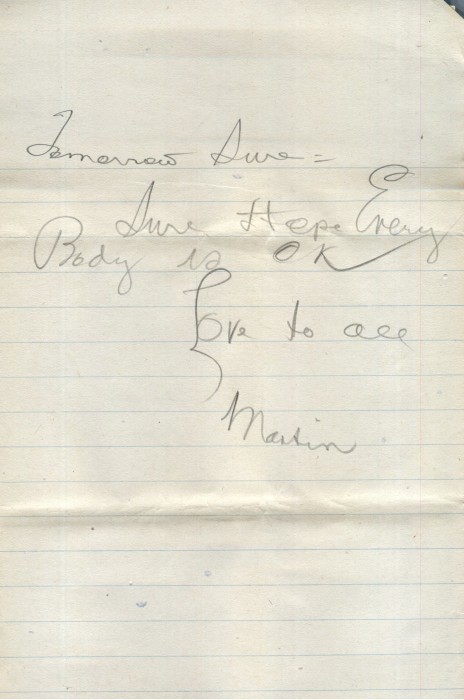 Tomorrow Sure =
Sure Hope Every
Body is OK
Love to all
Martin